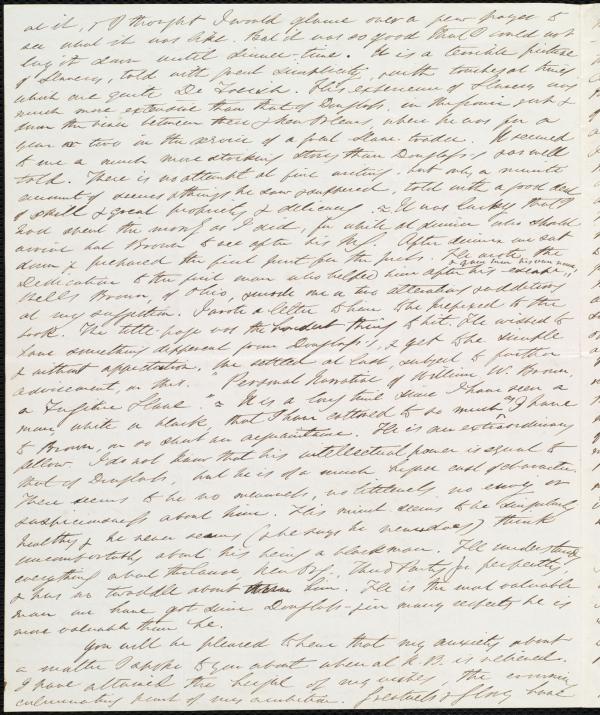 at it, & I thought I would glance over a few pages to
see what it was like. But it was so good that I could not
lay it down until dinner-time. It is a terrible picture
of Slavery, told with great simplicity, with touches at times
which are quite De Foeish. His experience of Slavery was
much more extensive than that of Douglass,
down the river between there & New Orleans, where he was for a
year or two in the service of a great slave trader. It seemed
to me a much more striking story than Douglass's & as well
told. There is no attempt at fine writing, but only a minute
account of scenes & things he saw & suffered, told with a good deal
of skill & great propriety & delicacy. It was lucky that I
read about the money as I did, for while at dinner who should
arrive but Brown to see after his MS. After dinner we sat
down & prepared the first part for the press. He wrote the
Dedication to the first man who helped him after his escape, & gave him his own name,
Wells Brown, of Ohio, & made one or two alterations & additions
at my suggestion. I wrote a letter to him to be prefixed to the
book. The title-page was the hardest thing to hit. He wished to
have something different from Douglass's, & yet to be simple
& without affectation. We settled at last, subject to further
advisement, on this. "Personal Narrative of William W. Brown,
a Fugitive Slave." It is a long time since I have seen a
man, white or black, that I have cottoned to so much, as I have
to Brown, on so short an acquaintance. He is an extraordinary
fellow. I do not know that his intellectual power is equal to
that of Douglass, but he is of a much higher cast of character.
There seems to be no meanness, no littleness, no envy or
suspiciousness about him. His mind seems to be singularly
healthy & he never seems (& he says he never does) think
uncomfortably about his being a black man. He understands
everything about the cause, New Org., Third Party, &c perfectly,
& has no twaddle about him. He is the most valuable
man we have got since Douglass & in many respects he is
more valuable than he.
You will be pleased to hear that my anxiety about
a matter I spoke to you about when at N. B. is relieved.
I have attained the height of my wishes, the crowning
culminating point of my ambition.